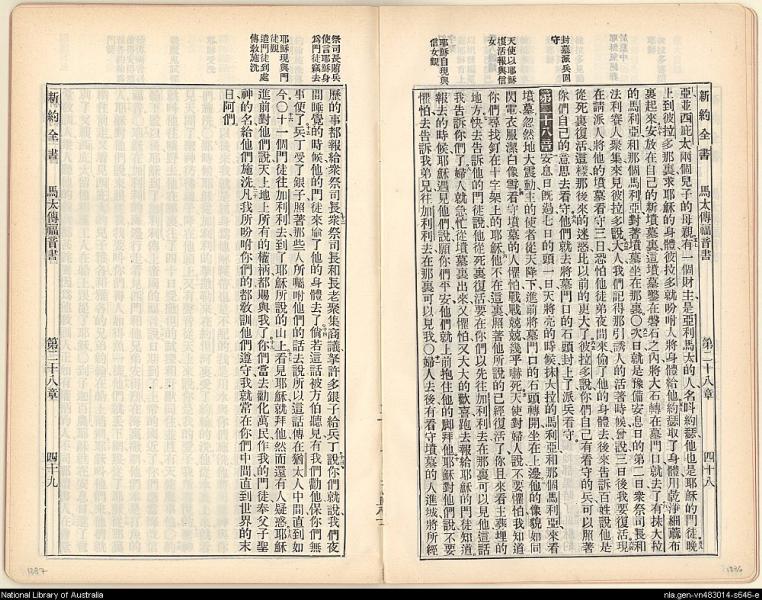 新約全書 馬太傳福音書 第二十八章 四十八
封墓派兵固守
天使以耶穌復活報與信女
耶穌自現與信女觀
亞並西庇太兩個兒子的母親有一個財主是亞利馬太的人名叫約瑟他也是耶穌的門徒晚
上到彼拉多那裏求耶穌的身體彼拉多就吩咐人將身體給他約瑟取了身體用乾淨細蔴布
裹起來安放在自己的新墳墓裏這墳墓鑿在磐石之內將大石轉在墓門口就去了有抹大拉
的馬利亞和那個馬利亞對著墳墓坐在那裏○次日就是豫備安息日的第二日衆祭司長和
法利賽人聚集來見彼拉多說大人我們記得那引誘人的活著時候曾說三日後我要復活現
在請派人將他的墳墓看守三日恐怕他徒弟夜間來偷了他的身體去後來告訴百姓說他是
從死裏復活這樣那後來的迷惑比以前的更大了彼拉多說你們自己有看守的兵可以照著
你們自己的意思去看守他們就去將墓門口的石頭封上了派兵看守
第二十八章安息日既過七日的頭一日天將亮的時候抹大拉的馬利亞和那個馬利亞來看
墳墓忽然地大震動主的使者從天降下進前將墓門口的石頭轉開坐在上邊他的像貌如同
閃電衣服潔白像雪看守墳墓的人懼怕戰戰兢兢幾乎嚇死天使對婦人說不要懼怕我知道
你們尋找釘在十字架上的耶穌他不在這裏照著他所說的已經復活了你且來看主葬埋的
地方快去告訴他的門徒說他從死裏復活要在你們以先往加利利去在那裏可以見他這話
我告訴你們了婦人就急忙從墳墓裏出來又懼怕又大大的歡喜跑去報給耶穌的門徒知道
報去的時候耶穌遇見他們說願你們平安他們就上前抱住他的脚拜他耶穌對他們說不要
懼怕去告訴我弟兄往加利利去在那裏可以見我○婦人去後有看守墳墓的人進城將所經
祭司長賂兵使言耶穌身爲門徒竊去
耶穌現與門徒觀
遣門徒到處傳敎施洗
歷的事都報給衆祭司長衆祭司長和長老聚集商議拏許多銀子給兵丁說你們就說我們夜
間睡覺的時候他的門徒來偷了他的身體去了倘若這話被方伯聽見有我們勸他保你們無
事兵丁受了銀子照著那些人所囑咐他們的話去說所以這話傳在猶太人中間直到如
今○十一個門徒往加利利去到了耶穌所說的山上看見耶穌就拜他然而還有人疑惑耶穌
進前對他們說天上地上所有的權柄都賜與我了你們當去勸化萬民作我的門徒奉父子聖
神的名給他們施洗凡我所吩咐你們的都敎訓他們遵守我就常在你們中間直到世界的末
日阿們
新約全書 馬太傳福音書 第二十八章 四十九
1387
1386
National Library of Australia
nla.gen-vn483014-s646-e